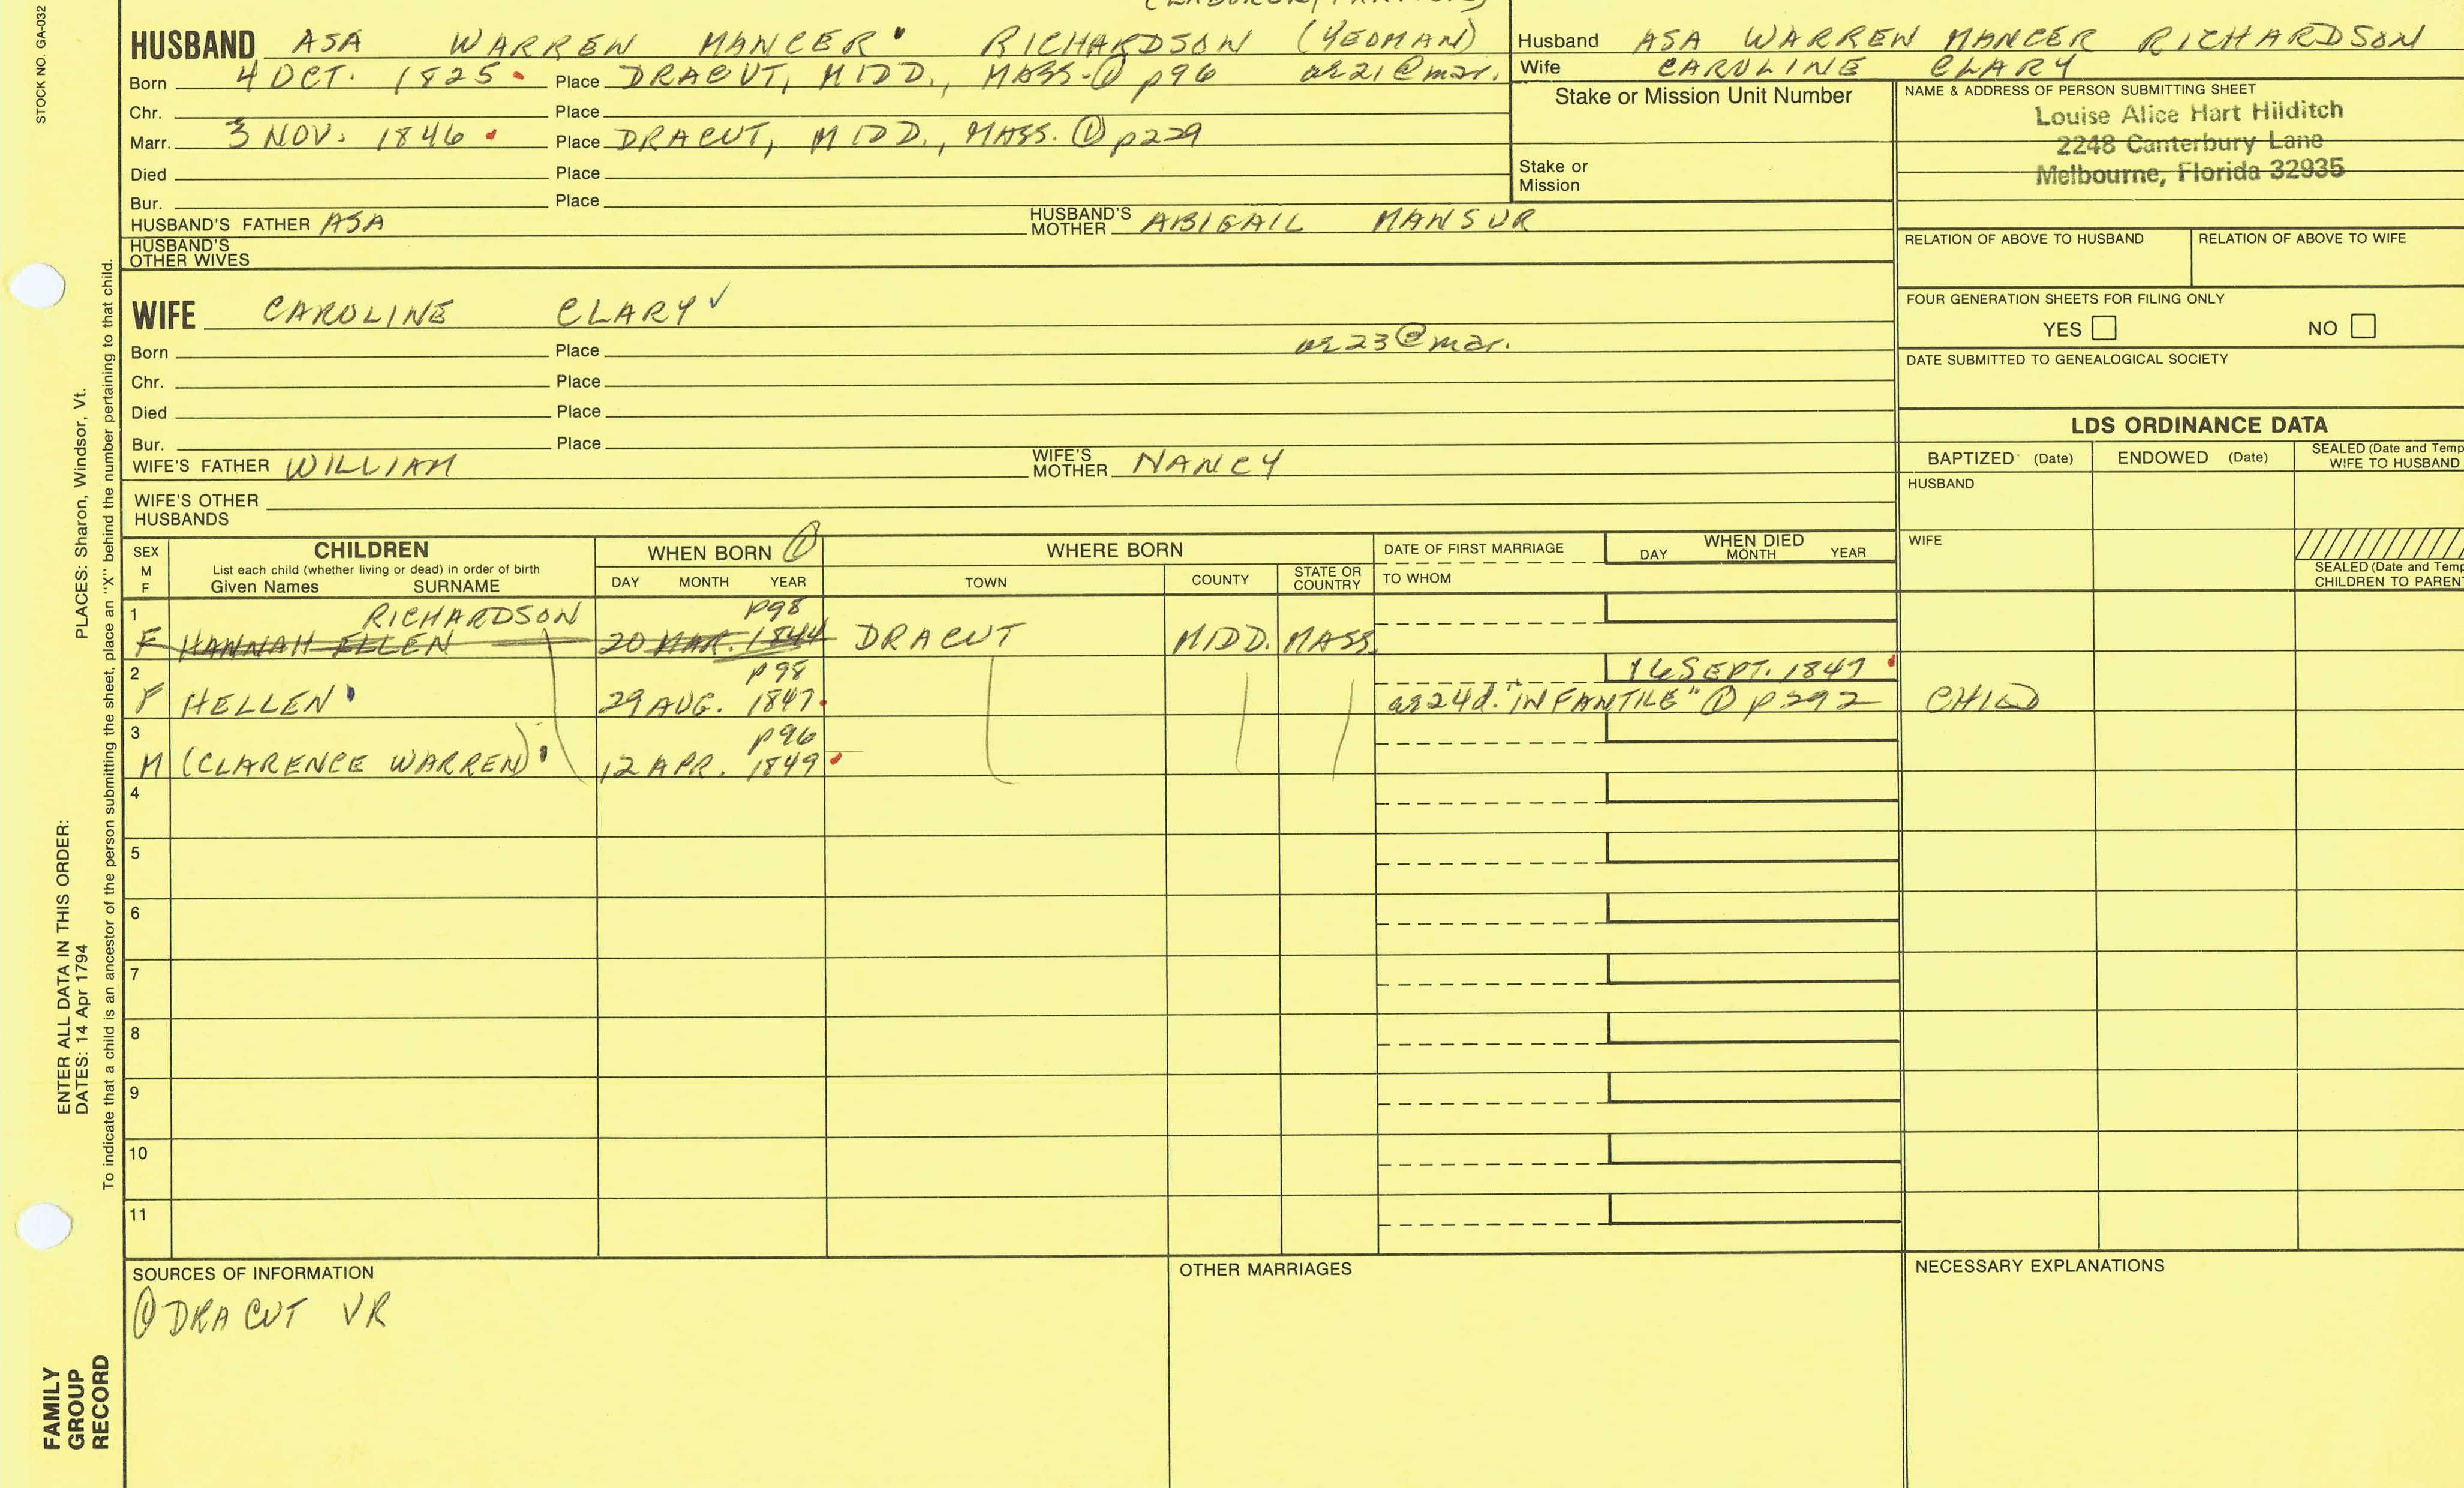 STOCK NO. GA-032
HUSBAND ASA WARREN MANCER RICHARDSON (YEOMAN)
Born 4 OCT. 1825 Place DRACUT, MIDD., MASS. ① p96 ag21@mar.
Chr. Place
Marr. 3 NOV. 1846 Place DRACUT, MIDD., MASS. ① p229
Died Place
Bur. Place
HUSBAND'S FATHER ASA HUSBAND'S MOTHER ABIGAIL MANSUR
HUSBAND'S OTHER WIVES
Husband ASA WARREN MANCER RICHARDSON
Wife CAROLINE CLARY
Stake or Mission Unit Number
Stake or
Mission
NAME & ADDRESS OF PERSON SUBMITTING SHEET
Louise Alice Hart Hilditch
2248 Canterbury Lane
Melbourne, Florida 32935
RELATION OF ABOVE TO HUSBAND RELATION OF ABOVE TO WIFE
FOUR GENERATION SHEETS FOR FILING ONLY
YES NO
DATE SUBMITTED TO GENEALOGICAL SOCIETY
WIFE CAROLINE CLARY ✓
Born Place ag23@mar.
Chr. Place
Died Place
Bur. Place
WIFE'S FATHER WILLIAM WIFE'S MOTHER NANCY
WIFE'S OTHER
HUSBANDS
LDS ORDINANCE DATA
BAPTIZED (Date) ENDOWED (Date) SEALED (Date and Temp
WIFE TO HUSBAND
HUSBAND
WIFE
SEALED (Date and Temp
CHILDREN TO PAREN
SEX
M
F
CHILDREN
List each child (whether living or dead) in order of birth
Given Names SURNAME
WHEN BORN ①
DAY MONTH YEAR
WHERE BORN
TOWN COUNTY STATE OR COUNTRY
DATE OF FIRST MARRIAGE
TO WHOM
WHEN DIED
DAY MONTH YEAR
1 RICHARDSON p98
F HANNAH ELLEN 20 MAR. 1844 DRACUT MIDD. MASS.
2 p98 16 SEPT. 1847
F HELLEN 29 AUG. 1847 ag24d. "INFANTILE" ① p292 CHILD
3 p96
M (CLARENCE WARREN) 12 APR. 1849
4
5
6
7
8
9
10
11
SOURCES OF INFORMATION
① DRACUT VR
OTHER MARRIAGES
NECESSARY EXPLANATIONS
PLACES: Sharon, Windsor, Vt.
ENTER ALL DATA IN THIS ORDER:
DATES: 14 Apr 1794
To indicate that a child is an ancestor of the person submitting the sheet, place an "X" behind the number pertaining to that child.
FAMILY
GROUP
RECORD